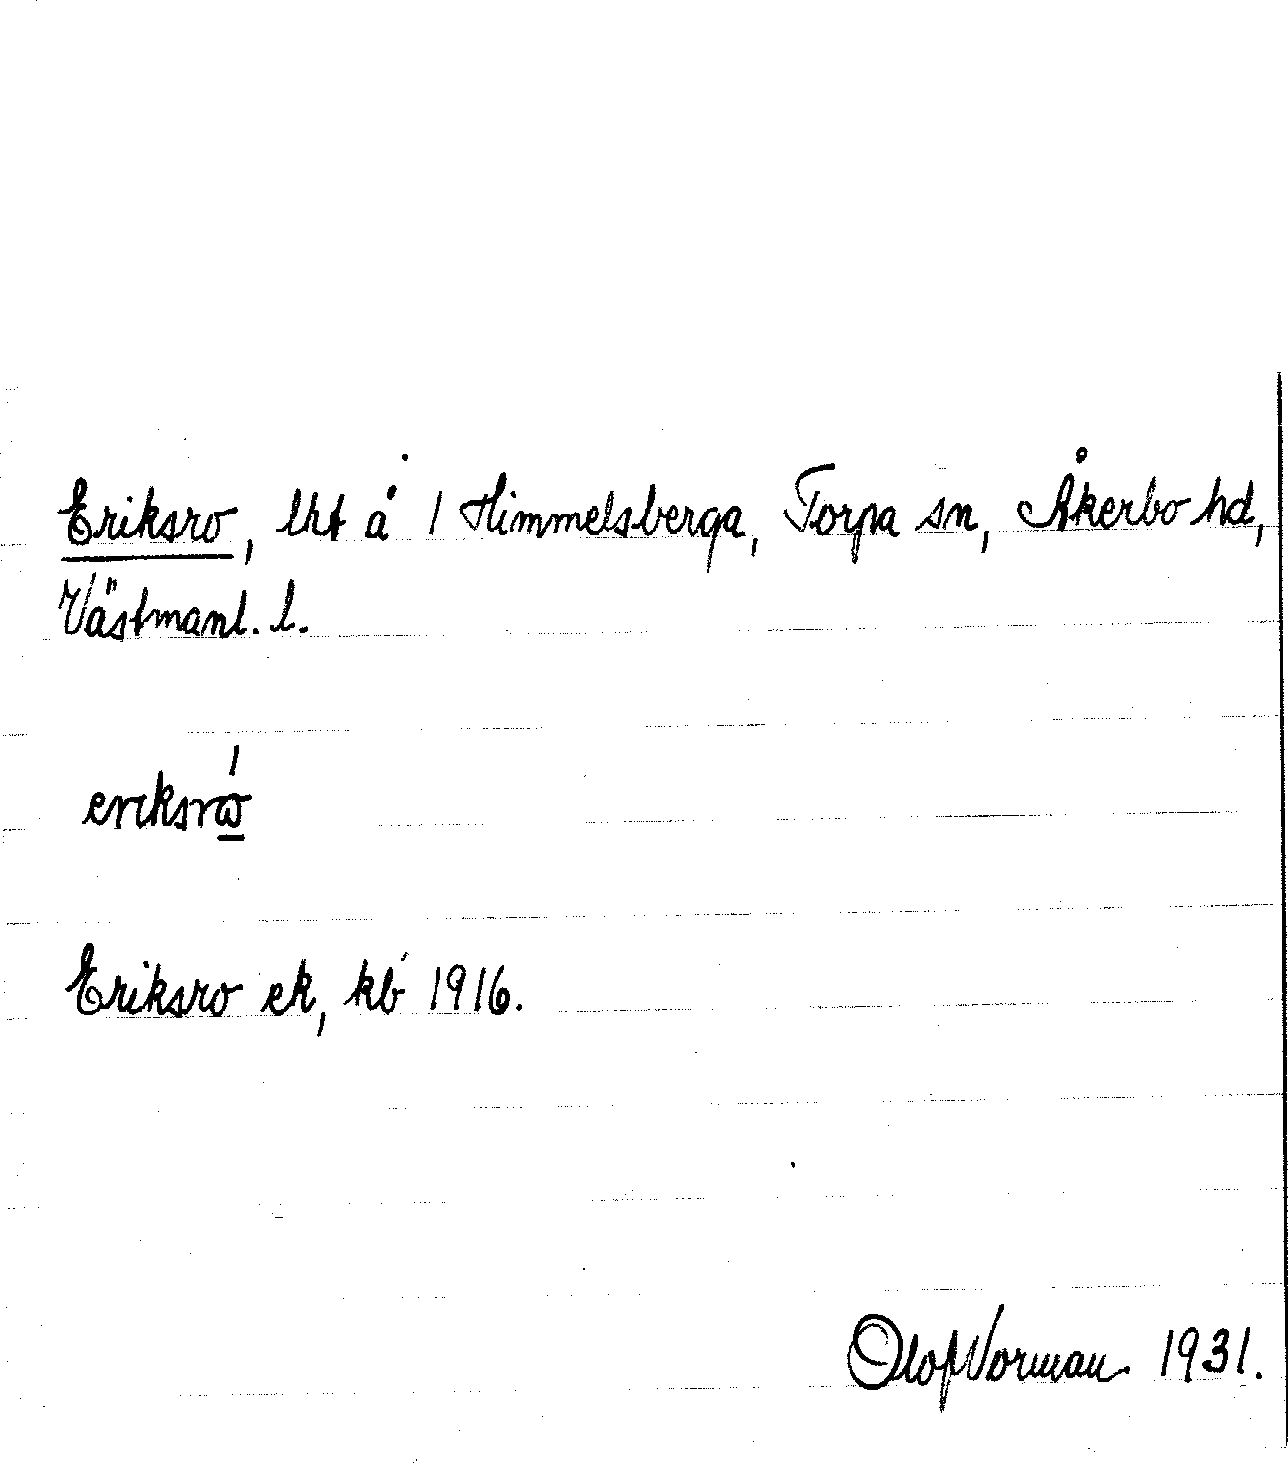 Eriksro, lht å 1 Himmelsberga, Torpa sn, Åkerbo hd,
Västmanl. l.
Eriksro ek, kb 1916.
Olof Vorman 1931.